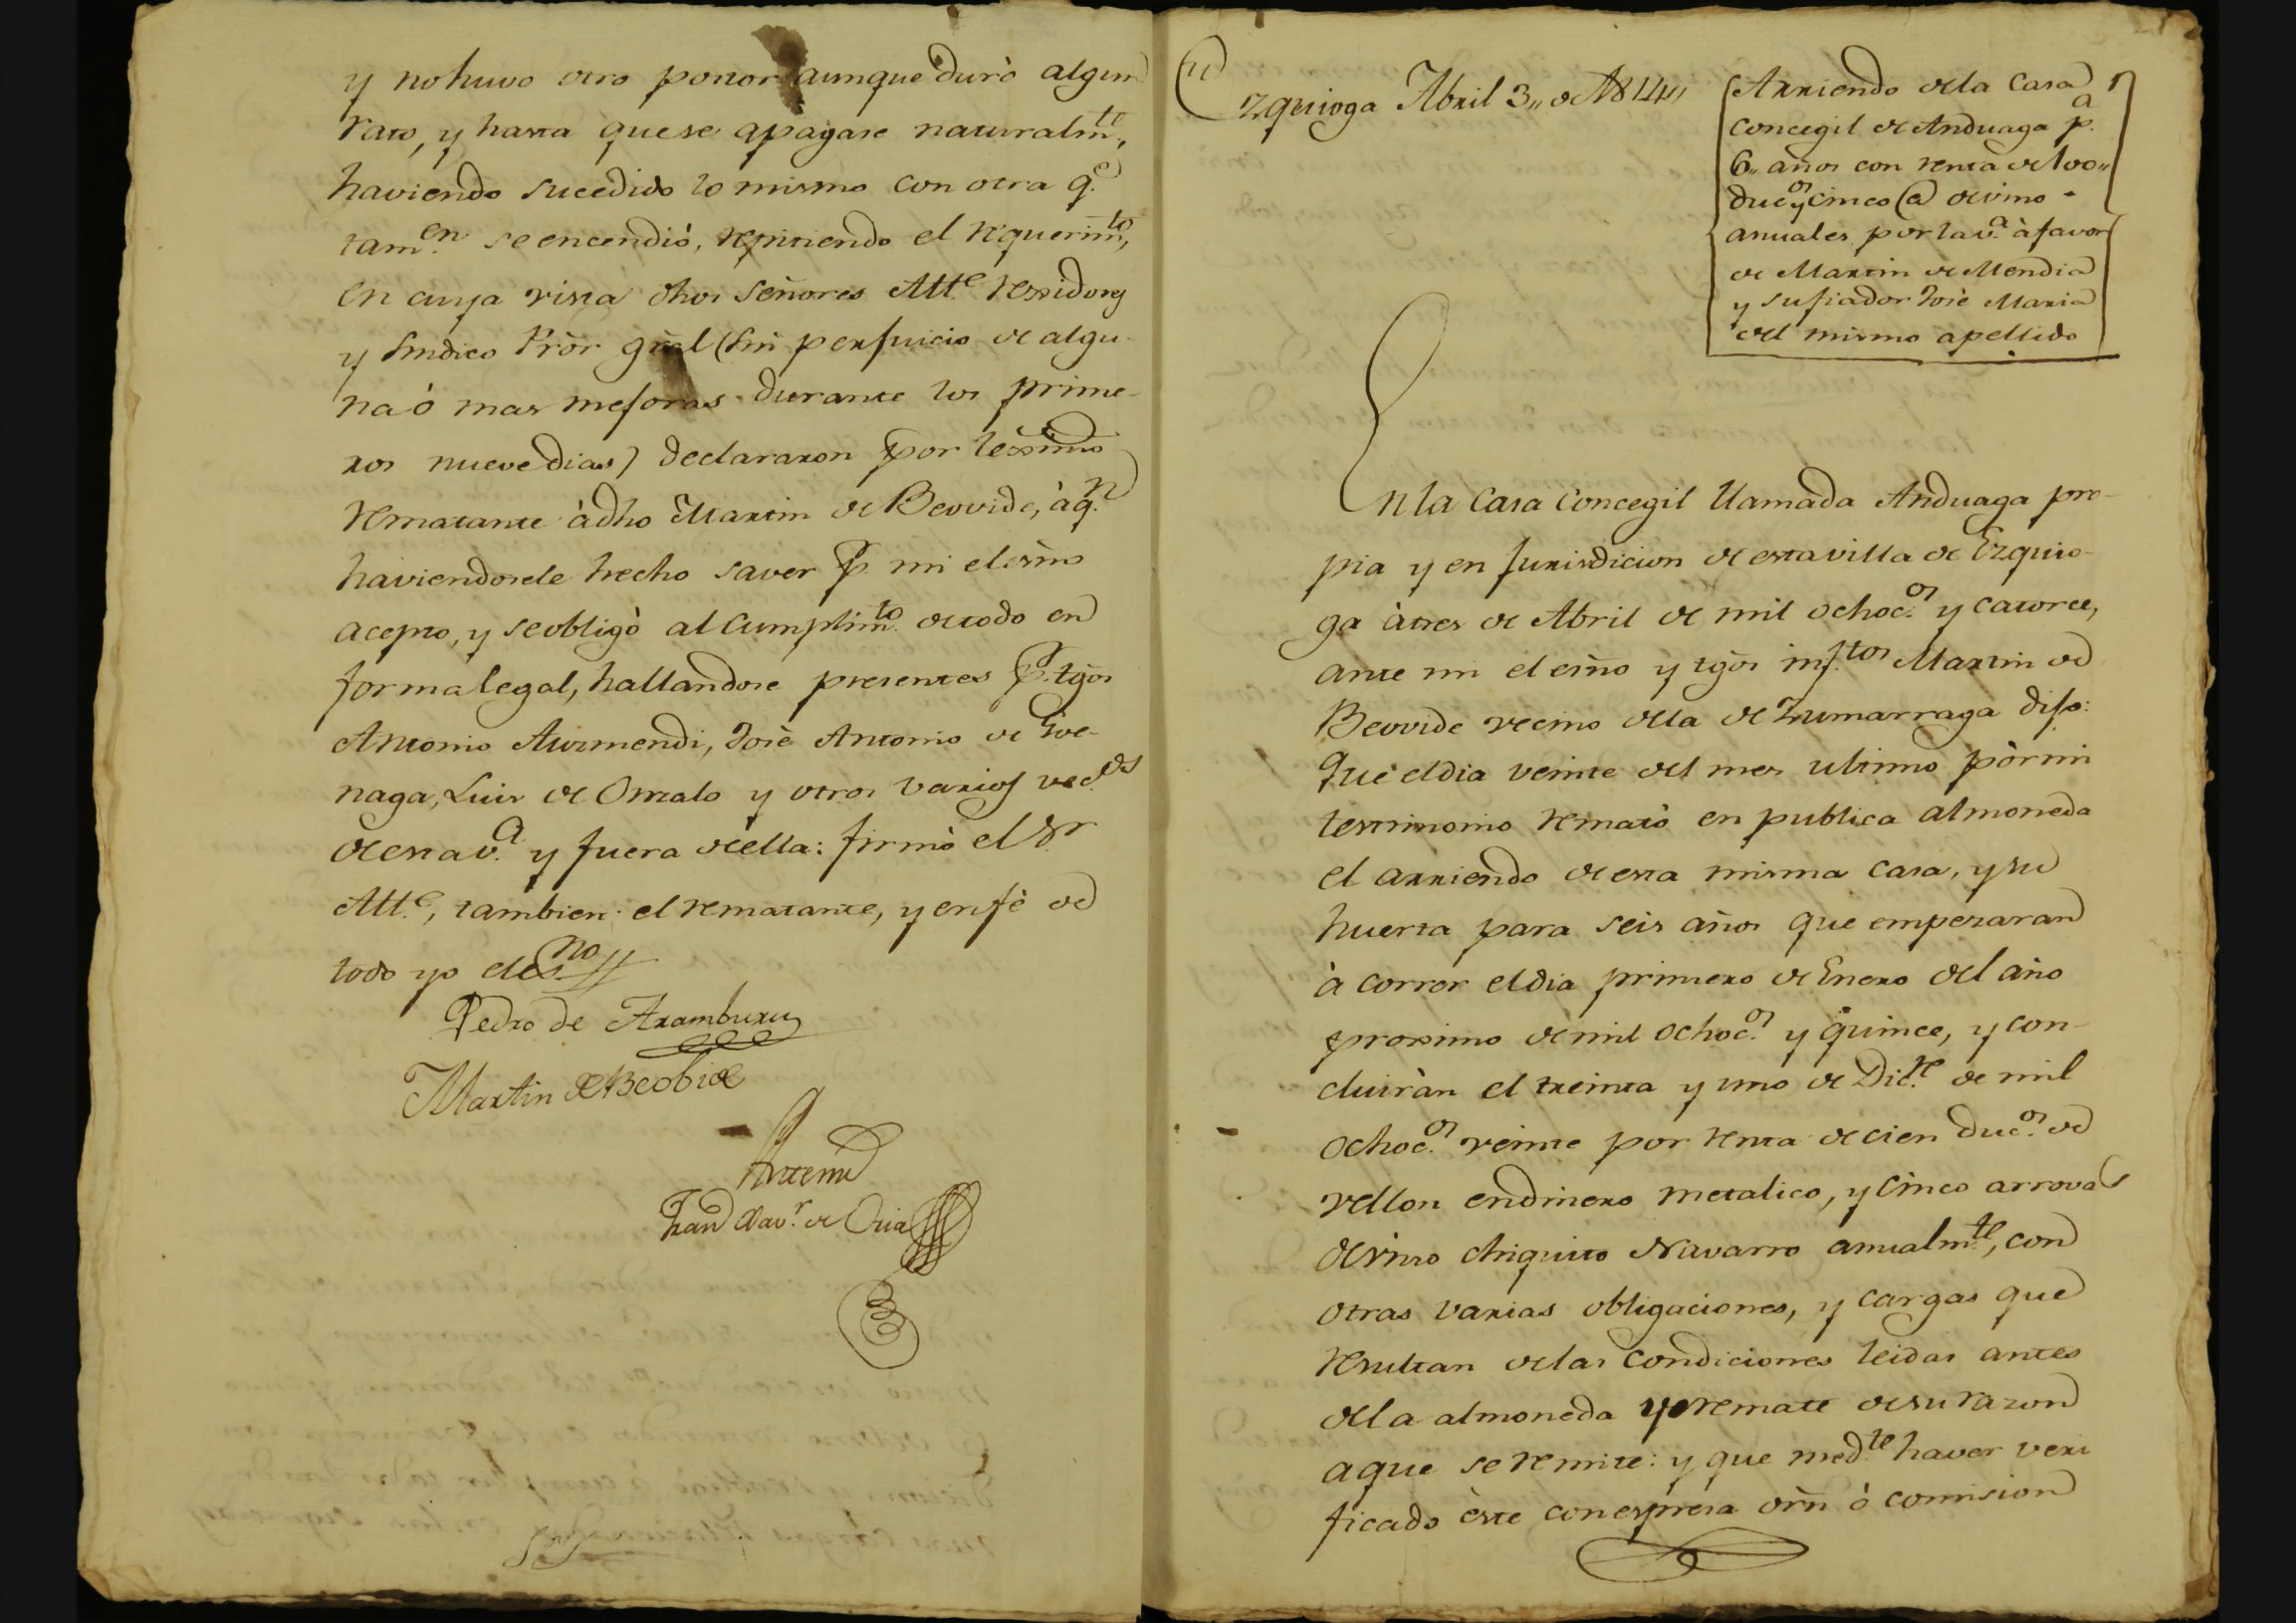 y no huvo otro postor aunque durò algun
rato, y hasta que se apagase naturalm.te,
haviendo sucedido lo mismo con otra q.e
tam.en se encendiò, repitiendo el requerim.to,
en cuya vista dhos Señores Alt.e Rexidores
y Sindico Pròr gral (sin perjuicio de algu-
na ò mas mejoras durante los prime-
ros nueve dias) declararon por lexmo
rematante à dho Martin de Beovide, à q.n
haviendosele hecho saver p.r mi el esno
acepto, y se obligò al cumplim.to de todo en
forma legal, hallandose presentes p.r tgos
Antonio Auzmendi, Josè Antonio de Goe-
naga, Luis de Onzalo y otros varios vec.os
de esta v.a y fuera de ella: firmò el S.r
Alt.e, tambien el rematante, y en fè de
todo yo el es.no
Pedro de Aramburu
Martin de Beobide
Antemi
Fran Xav.r de Oria
En
Ezquioga Abril 3,, de 1814,,
Arriendo de la Casa
Concegil de Anduaga p.a
6,, años con renta de 100,,
duc.os y cinco @ de vino
anuales por la v.a à favor
de Martin de Mendia
y su fiador Josè Maria
del mismo apellido
En la Casa Concegil llamada Anduaga pro-
pia y en jurisdicion de esta villa de Ezquio-
ga à tres de Abril de mil ochoc.os y catorce,
ante mi el esño y tgos inf.tos Martin de
Beovide vecino de la de Zumarraga dijo:
Que el dia veinte del mes ultimo pòr mi
testimonio rematò en publica almoneda
el arriendo de esta misma casa, y su
huerta para seis años que empezaran
à correr el dia primero de Enero del año
proximo de mil ochoc.os y quince, y con-
cluiràn el treinta y uno de Dic.re de mil
ochoc.os veinte por renta de cien duc.os de
vellon en dinero metalico, y cinco arrovas
de vino chiquito Navarro anualm.te, con
otras varias obligaciones, y cargas que
resultan de las condiciones leidas antes
de la almoneda y remate de su razon
a que se remite: y que med.te haver veri
ficado èste con espresa orñ ò comision